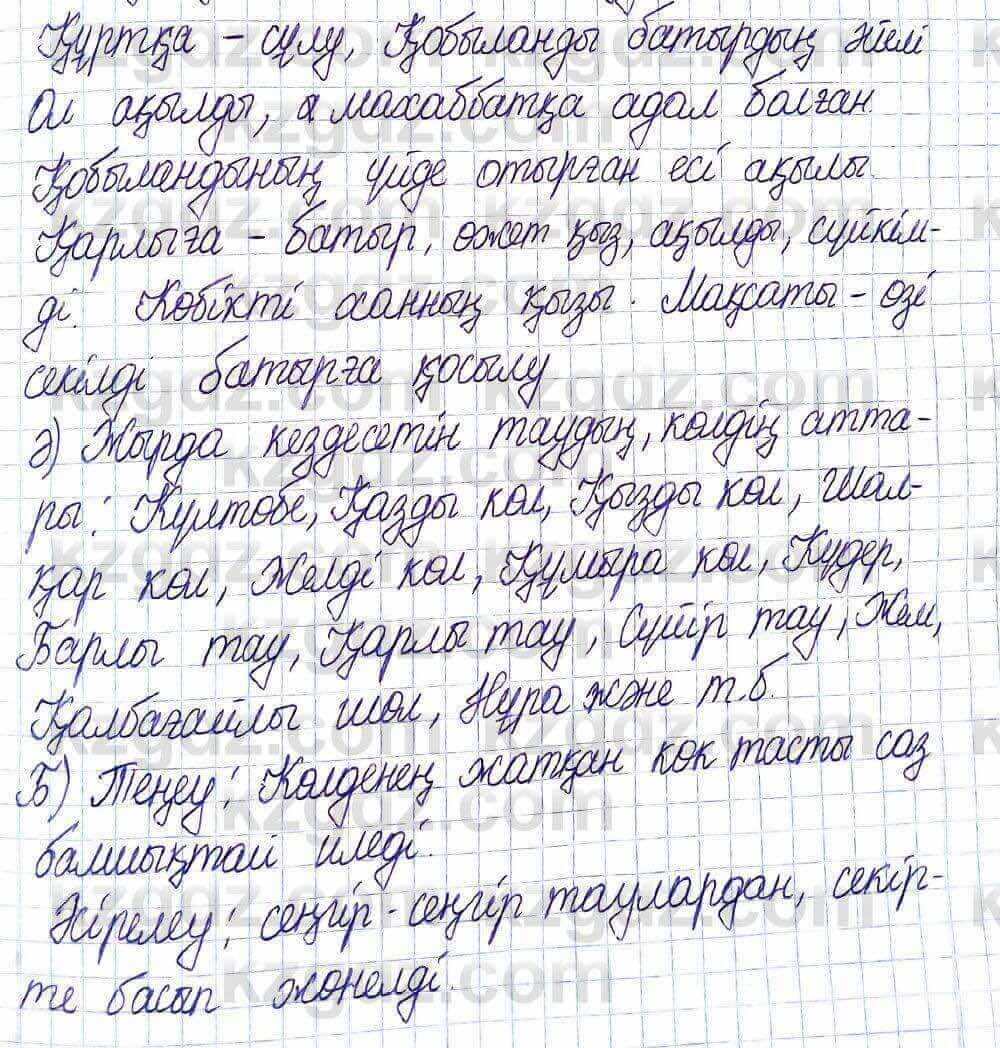 Құртқа – сұлу, Қобыланды батырдың әйелі
Ол ақылды, махаббатқа адал болған.
Қобыландының үйде отырған есі ақылы.
Қарлыға – батыр, өжет қыз, ақылды, сүйкім-
ді. Көбікті ханның қызы. Мақсаты – өзі
секілді батырға қосылу
ә) Жырда кездесетін таудың, көлдің атта-
ры: Күлтөбе, Қазды көл, Қызды көл, Шал-
қар көл, Желді көл, Құмыра көл, Күдер,
Барлы тау, Қарлы тау, Сүйір тау, Жем,
Қалбағайлы шөл, Нұра және т.б.
Б) Теңеу: Көлденең жатқан көк тасты саз
балшықтай иледі.
Әсірелеу: сеңгір-сеңгір таулардан, секір-
те басып жөнелді.
kzgdz.com